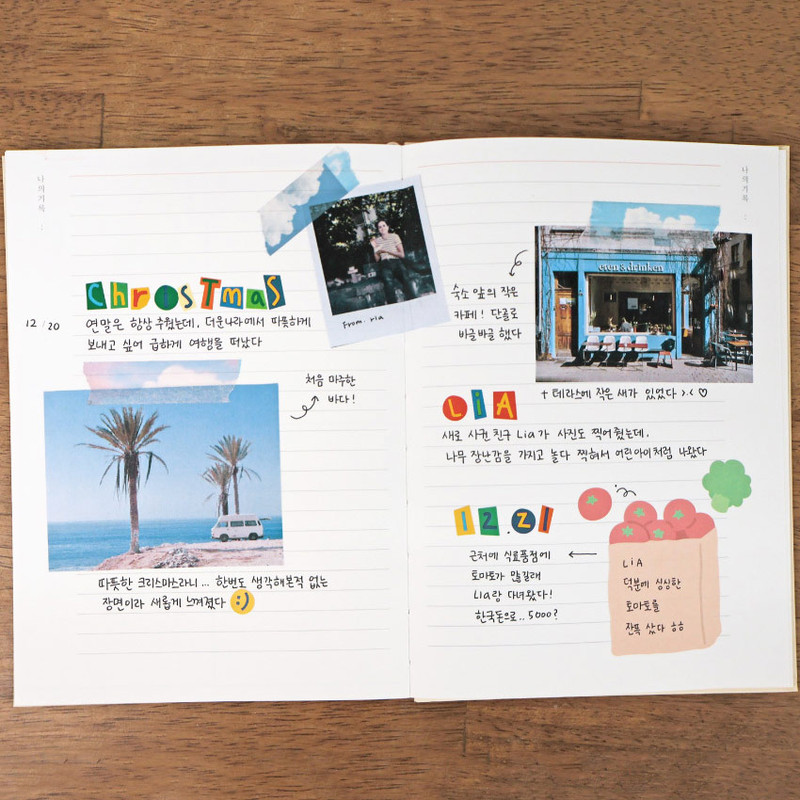 나의기록
ChrosTmaS
12/20
연말은 항상 추웠는데, 더운나라에서 따뜻하게
보내고 싶어 급하게 여행을 떠났다
From. ria
처음 마주한
바다!
따뜻한 크리스마스라니... 한번도 생각해본적 없는
장면이라 새롭게 느껴졌다 :)
나의기록
eten & drinken
숙소 앞의 작은
카페! 단골로
바글바글 했다
+ 테라스에 작은 새가 있었다 >.< ♡
LiA
새로 사귄 친구 Lia가 사진도 찍어줬는데,
나무 장난감을 가지고 놀다 찍혀서 어린아이처럼 나왔다
12.21
근처에 식료품점에
토마토가 많길래
Lia랑 다녀왔다!
한국돈으로.. 5000?
LiA
덕분에 싱싱한
토마토를
잔뜩 샀다 ㅎㅎ